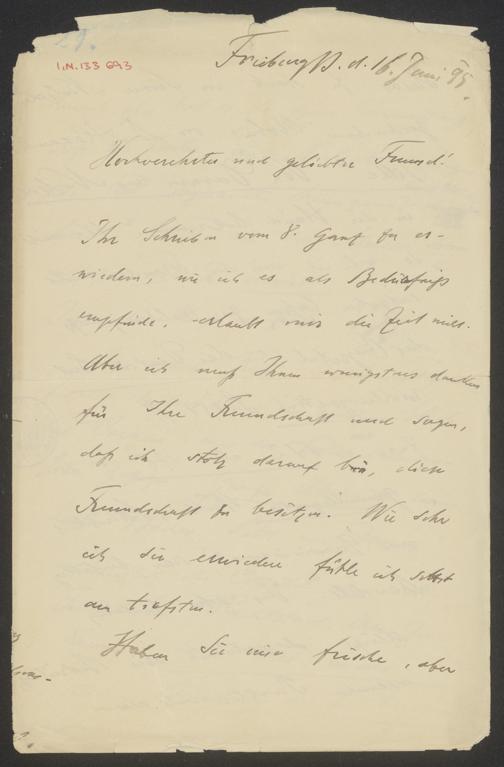 29.
I.N. 133 693
Freiburg i/B. d. 16. Juni 95.
Hochverehrter und geliebter Freund!
Ihr Schreiben vom 8. ganz zu er-
wiedern, wie ich es als Bedürfniß
empfinde, erlaubt mir die Zeit nicht.
Aber ich muß Ihnen wenigstens danken
für Ihre Freundschaft und sagen,
daß ich stolz darauf bin, diese
Freundschaft zu besitzen. Wie sehr
ich sie erwiedere fühle ich selbst
am tiefsten.
Haben Sie nur frische, aber